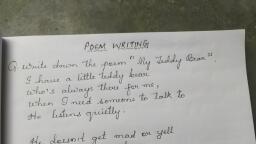 POEM WRITING
Q. Write down the poem "My Teddy Bear".
I have a little teddy bear
Who's always there for me,
When I need someone to talk to
He listens quietly.
He doesn't get mad or yell